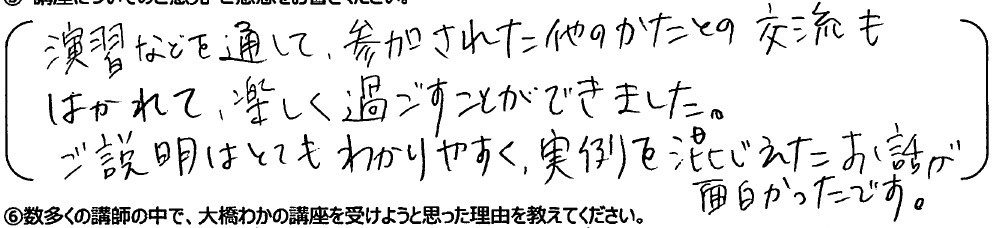 演習などを通して、参加された他のかたとの交流も
はかれて、楽しく過ごすことができました。
ご説明はとてもわかりやすく、実例を混じえたお話が
面白かったです。
⑥数多くの講師の中で、大橋わかの講座を受けようと思った理由を教えてください。